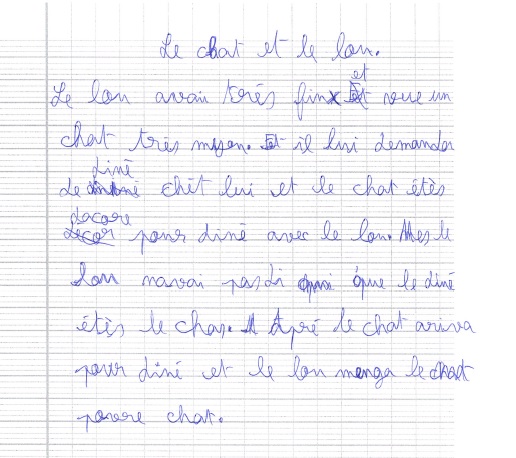 Le chat et le lou.
Le lou avai trés fin et
et vue un
chat très myon. Et il lui demanda
diné
de chèt lui et le chat étès
dacore
pour diné avec le lou. Mes le
lou navai pas di que le diné
étès le chat. Apré le chat ariva
pour diné et le lou menga le chat
povre chat.